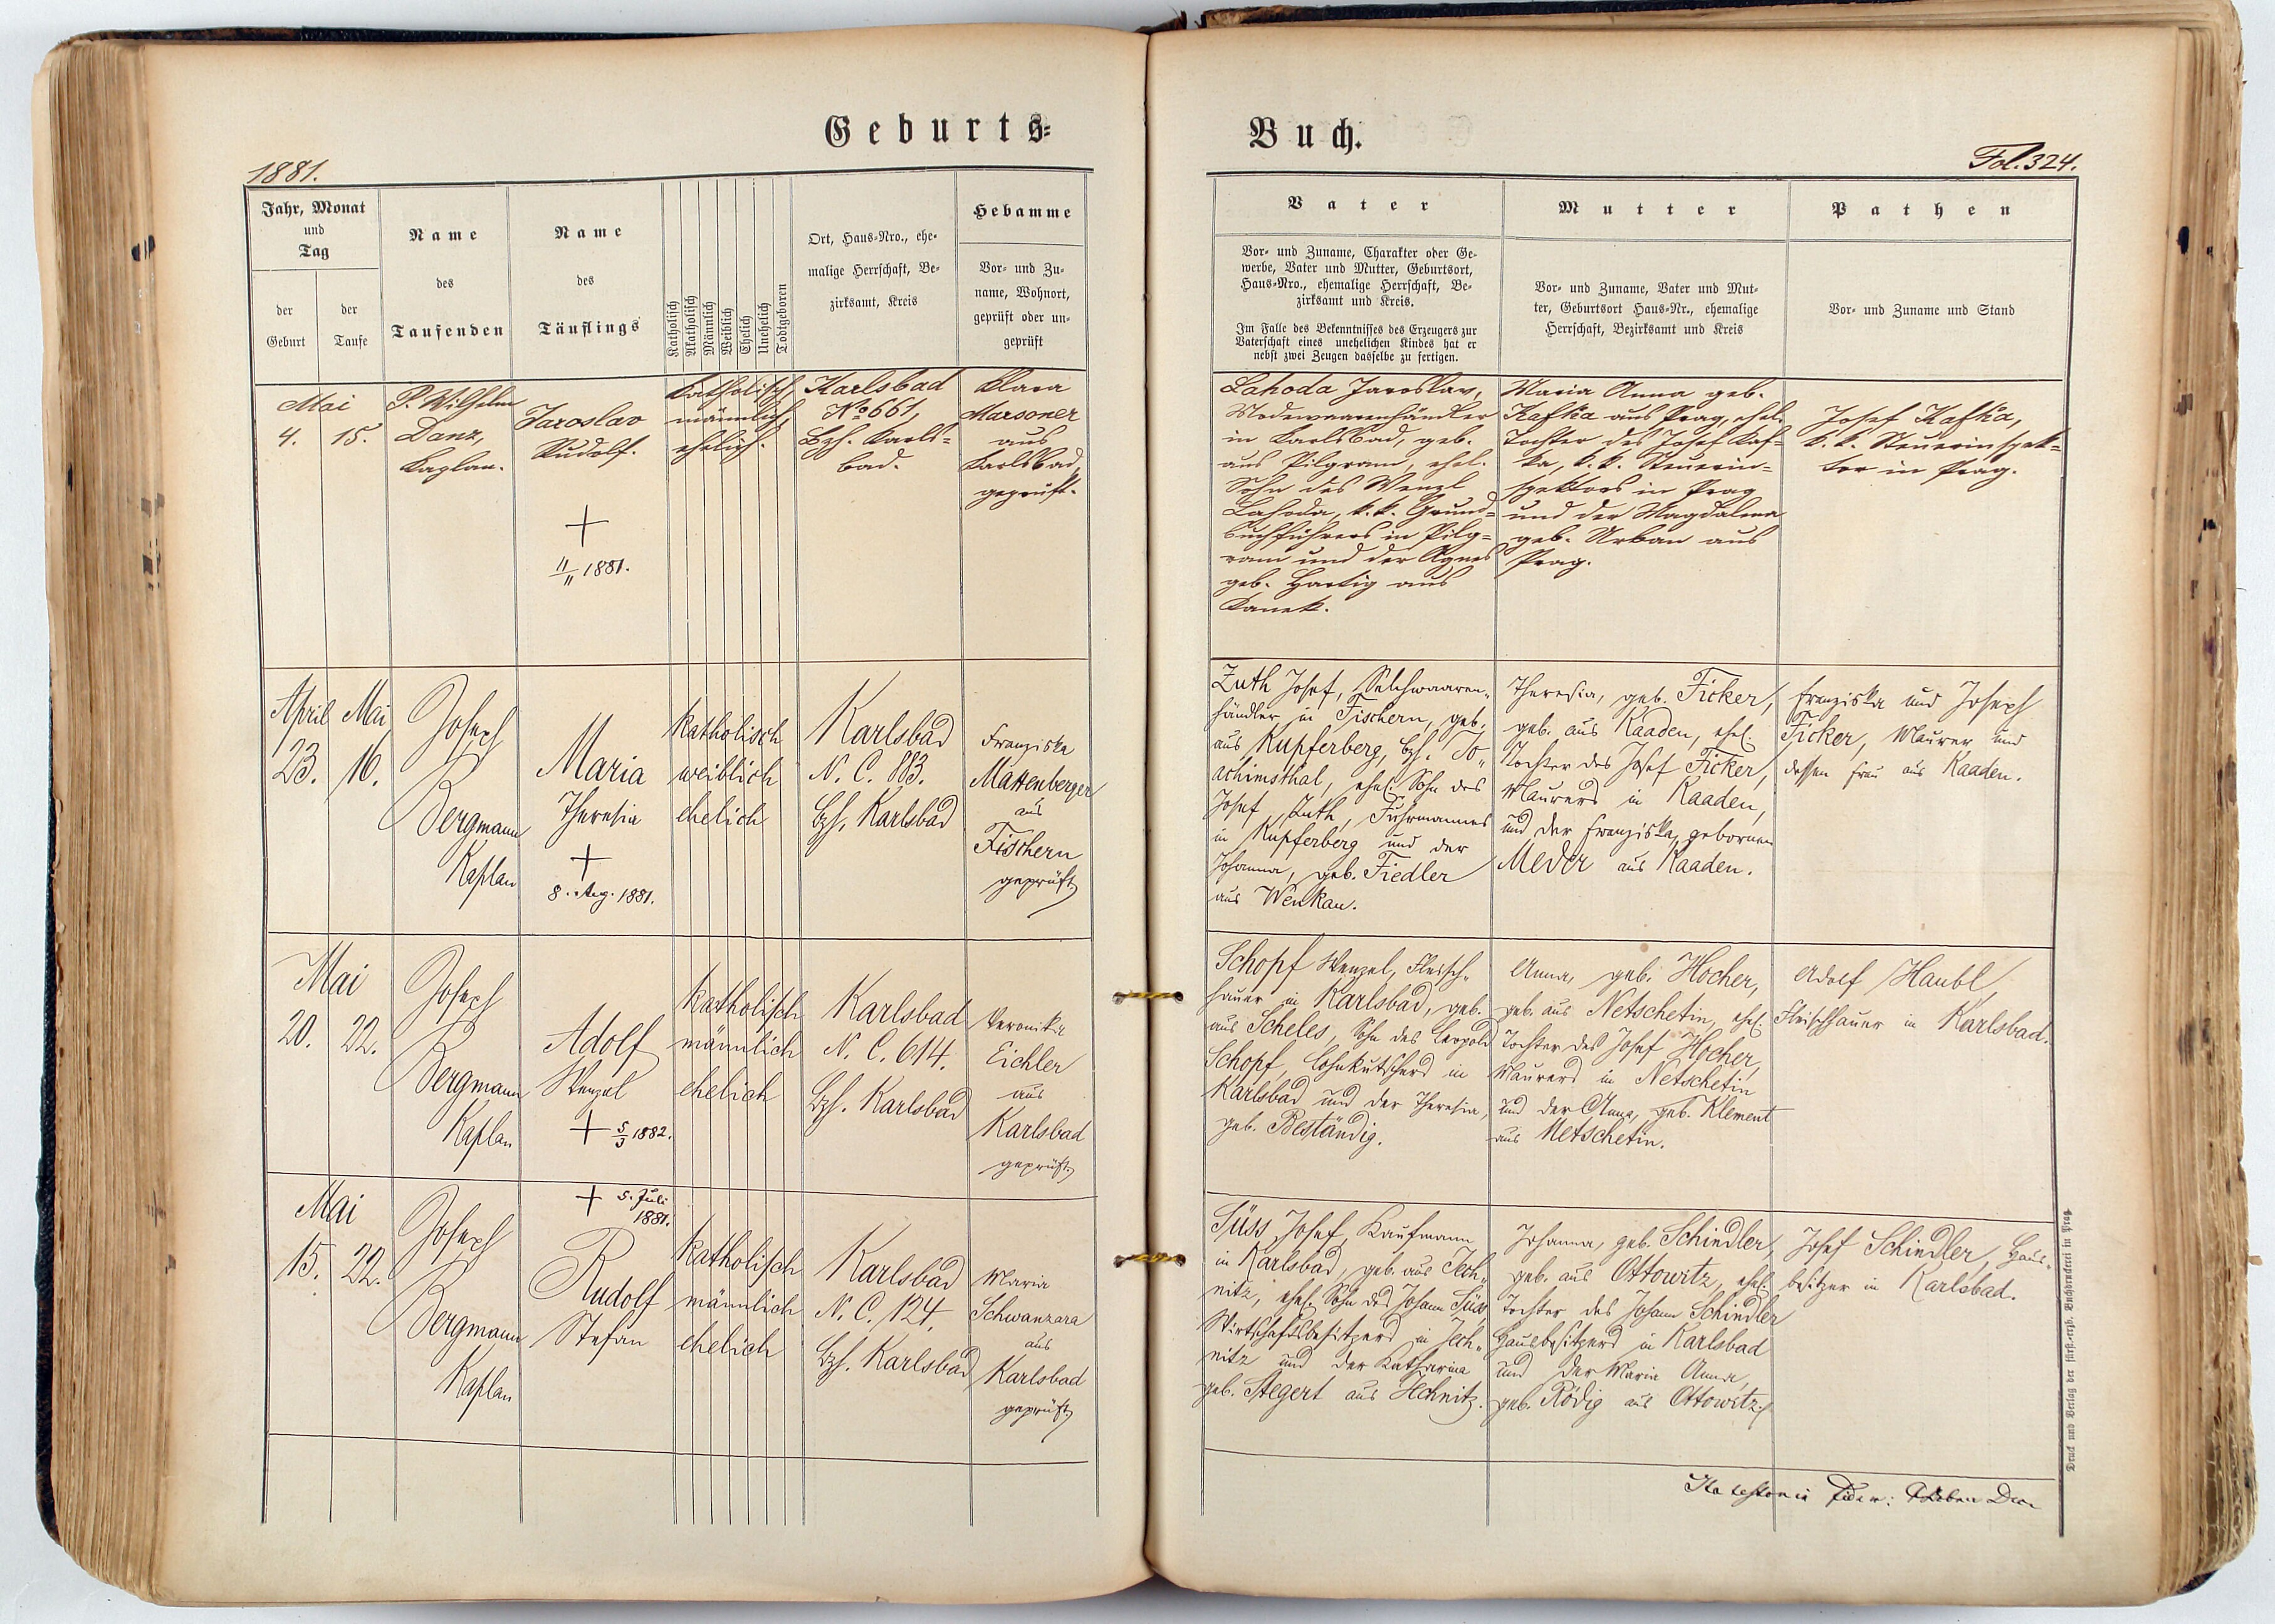 Geburts=
Buch.
1881.
Fol. 324.
Jahr, Monat
und
Tag
der
Geburt
der
Taufe
Name
des
Taufenden
Name
des
Täuflings
Katholisch
Akatholisch
Männlich
Weiblich
Ehelich
Unehelich
Todtgeboren
Ort, Haus-Nro., ehe-
malige Herrschaft, Be-
zirksamt, Kreis
Hebamme
Vor- und Zu-
name, Wohnort,
geprüft oder un-
geprüft
Vater
Vor- und Zuname, Charakter oder Ge-
werbe, Vater und Mutter, Geburtsort,
Haus-Nro., ehemalige Herrschaft, Be-
zirksamt und Kreis.
Im Falle des Bekenntnisses des Erzeugers zur
Vaterschaft eines unehelichen Kindes hat er
nebst zwei Zeugen dasselbe zu fertigen.
Mutter
Vor- und Zuname, Vater und Mut-
ter, Geburtsort Haus-Nr., ehemalige
Herrschaft, Bezirksamt und Kreis
Pathen
Vor- und Zuname und Stand
Mai
4.
15.
P. Wilhelm
Danz,
Kaplan.
Jaroslav
Rudolf.
+
11/11 1881.
katholisch,
männlich,
ehelich.
Karlsbad
No 661,
Bzh. Karls=
bad.
Klara
Marsoner
aus
Karlsbad,
geprüft.
Lahoda Jaroslav,
Modewaarenhändler
in Karlsbad, geb.
aus Pilgram, ehel.
Sohn des Wenzl
Lahoda, k. k. Grund=
buchführers in Pilg=
ram und der Agnes
geb. Hartig aus
Kanek.
Maria Anna geb.
Kafka aus Prag, ehel.
Tochter des Josef Kaf=
ka, k. k. Steuerin=
spektors in Prag
und der Magdalena
geb. Urban aus
Prag.
Josef Kafka,
k. k. Steuerinspek=
tor in Prag.
April
23.
Mai
16.
Joseph
Bergmann
Kaplan
Maria
Theresia
+
8. Aug. 1881.
katholisch
weiblich
ehelich
Karlsbad
N. C. 883.
Bzh. Karlsbad
Franziska
Mattenberger
aus
Fischern
geprüft
Zuth Josef, Selchwaaren„
händler in Fischern, geb.
aus Kupferberg, Bzh. Jo„
achimsthal, ehel. Sohn des
Josef Zuth, Fuhrmannes
in Kupferberg und der
Johanna, geb. Fiedler
aus Wenkau.
Theresia, geb. Ficker,
geb. aus Kaaden, ehel.
Tochter des Josef Ficker,
Maurers in Kaaden,
und der Franziska, gebornen
Meder aus Kaaden.
Franziska und Joseph
Ficker, Maurer und
dessen Frau aus Kaaden.
Mai
20.
22.
Joseph
Bergmann
Kaplan
Adolf
Wenzel
+ 5/3 1882.
katholisch
männlich
ehelich
Karlsbad
N. C. 614.
Bzh. Karlsbad
Veronika
Eichler
aus
Karlsbad
geprüft
Schopf Wenzel, Fleisch„
hauer in Karlsbad, geb.
aus Scheles, Sohn des Leopold
Schopf, Lohnkutschers in
Karlsbad und der Theresia,
geb. Beständig.
Anna, geb. Hocher,
geb. aus Netschetin, ehel.
Tochter des Josef Hocher,
Maurers in Netschetin
und der Anna, geb. Klement
aus Netschetin.
Adolf Haubl,
Fleischhauer in Karlsbad.
Mai
15.
22.
Joseph
Bergmann
Kaplan
+ 5. Juli
1881.
Rudolf
Stefan
katholisch
männlich
ehelich
Karlsbad
N. C. 124.
Bzh. Karlsbad
Maria
Schwanzara
aus
Karlsbad
geprüft
Süss Josef, Kaufmann
in Karlsbad, geb. aus Jech„
nitz, ehel. Sohn des Johann Süss,
Wirtschaftsbesitzers in Jech„
nitz und der Katharina
geb. Stegert aus Jechnitz.
Johanna, geb. Schindler,
geb. aus Ottowitz, ehel.
Tochter des Johann Schindler
Hausbesitzers in Karlsbad
und der Maria Anna,
geb. Rödig aus Ottowitz.
Josef Schindler, Haus„
besitzer in Karlsbad.
Druck und Verlag der fürst.-erzb. Buchdruckerei in Prag.